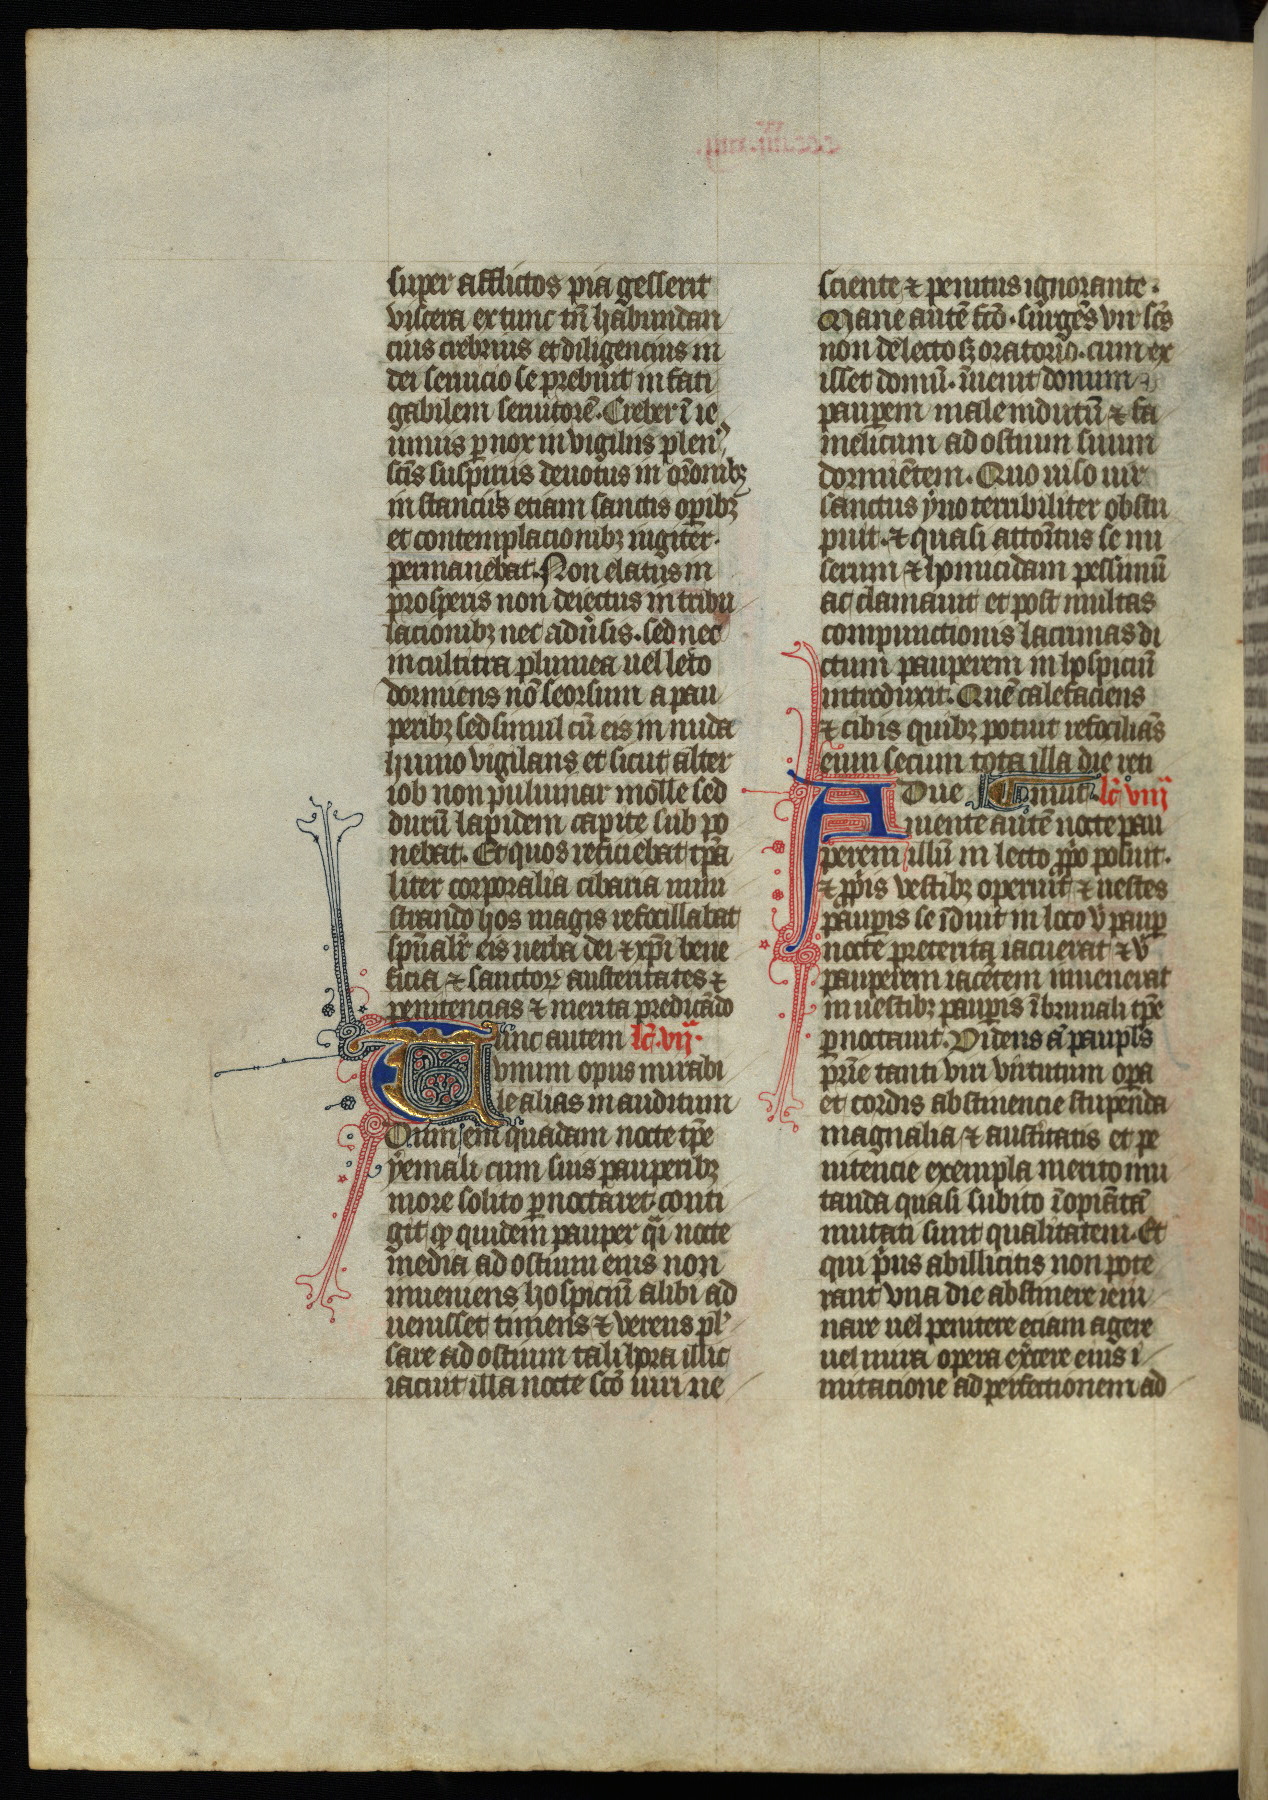 super afflictos pia gesserit
viscera ex tunc tñ habundan
cius crebrius et diligencius in
dei seruicio se prebuit in fati
gabilem seruitorē. Creber ī ie
iuniis ꝑnox in vigiliis plen᷒
sctīs suspiriis deuotus in orōnibꝫ
in stanciis etiam sanctis oꝑibꝫ
et contemplacionibꝫ iugiter.
permanebat. Non elatus in
prosperis non deiectus in tribu
lacionibꝫ nec aduˀsis. sed nec
in cultitra plumea uel lecto
dormiens nō seorsum a pau
peribꝫ sed simul cū eis in nuda
humo vigilans et sicut alter
iob non puluinar molle sed
durū lapidem capite sub po
nebat. Et quos reficiebat tꝑa
liter corporalia cibaria mini
strando hos magis refocillabat
spūalr̄ eis uerba dei ⁊ xp̄i bene
ficia ⁊ sanctoꝝ austeritates ⁊
penitencias ⁊ merita predicādo
Tunc autem lc̄. vij.
vnum opus mirabi
le alias inauditum
Dum em̄ quadam nocte tꝑe
yemali cum suis pauperibꝫ
more solito ꝑnoctaret. conti
git ꝙ quidem pauper qͥ nocte
media ad ostium eius non
inueniens hospiciū alibi ad
uenisset timens ⁊ verens pl̄
sare ad ostium tali hora illic
iacuit illa nocte sc̄o uiri ne
sciente ⁊ penitus ignorante.
Mane autē fc̄o. surgēs vir sc̄s
non de lecto sꝫ oratorio. cum ex
isset domū. īuenit donum
pauꝑem male indutū ⁊ fa
melicum ad ostium suum
dormiētem. Quo uiso uir
sanctus ymo terribiliter obstu
puit. ⁊ quasi attonitus se mi
serum ⁊ homicidam pessimū
ac clamauit et post multas
compunctionis lacrimas di
ctum pauperem in hospiciū
introduxit. Quē calefaciens
⁊ cibis quibꝫ potuit refociliās
eum secum tota illa die reti
nuit lc̄ viij
Adue
niente autē nocte pau
perem illū in lecto ꝓo posuit.
⁊ ꝓpis vestibꝫ operuit ⁊ uestes
pauꝑis se īduit in loco ꝟ pauꝑ
nocte preterita iacuerat ⁊ ꝟ
pauperem iacētem inuenerat
in uestibꝫ pauꝑis ī brumali tꝑe
ꝑnoctauit. Videns a᷑ paupl̄s
prīe tanti viri virtutum oꝑa
et cordis abstinencie stupenda
magnalia ⁊ austītatis et pe
nitencie exempla merito mu
tanda quasi subito īopiātā
mutati sunt qualitatem. Et
qui pͥus ab illicitis non pote
rant vna die abstinere ieiu
nare uel penitere eciam agere
uel mira opera exˀcere eius i
mitacione ad perfectionem ad